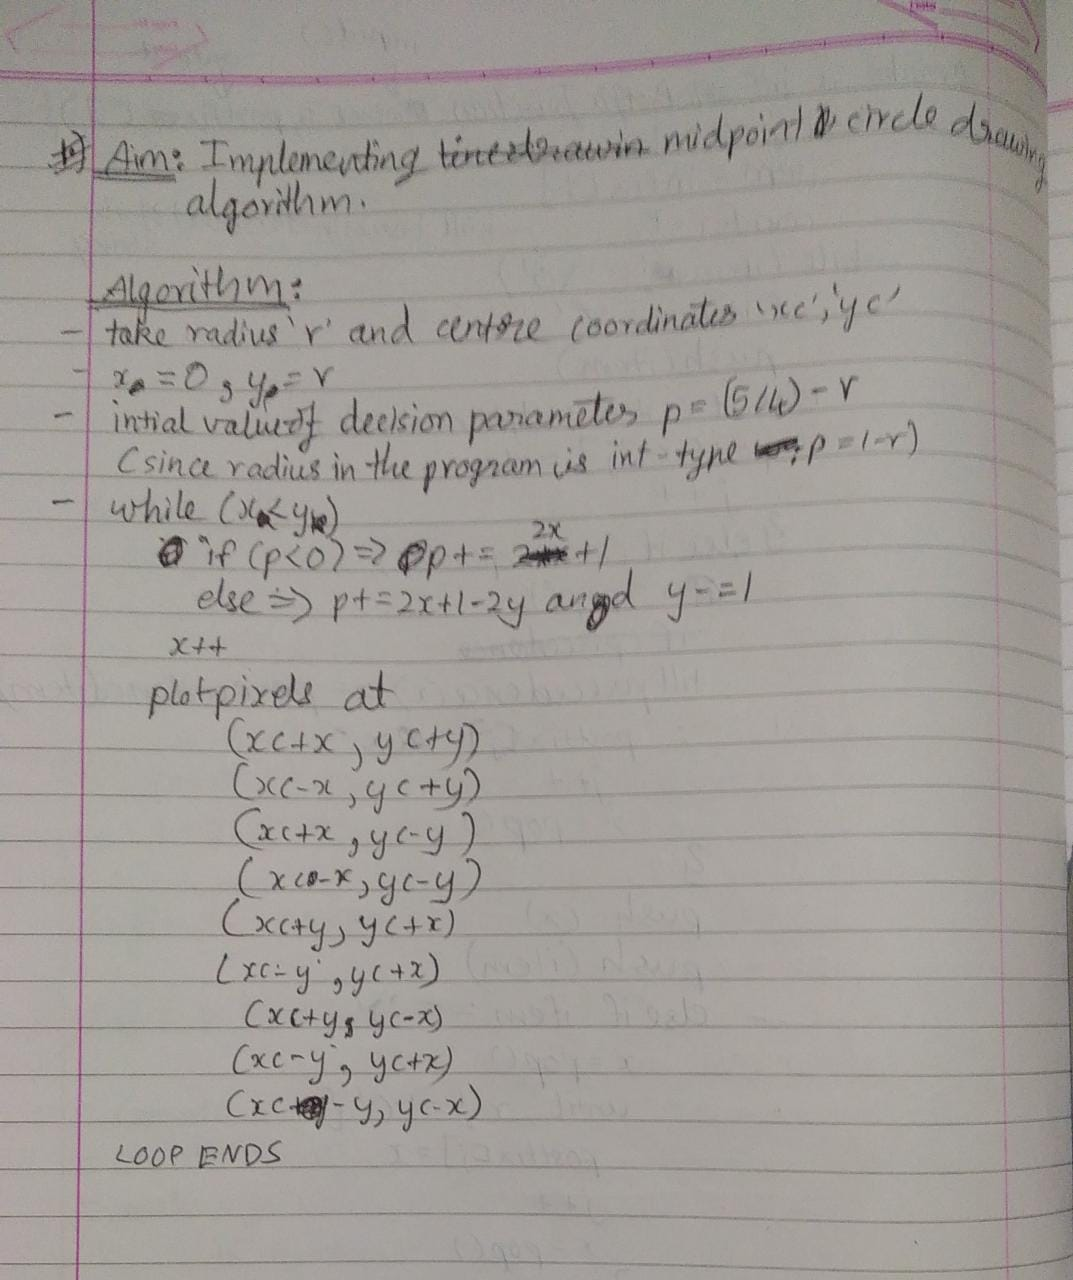 Aim: Implementing midpoint circle drawing
algorithm.
Algorithm:
- take radius 'r' and centre coordinates 'xc', 'yc'
- x = 0, y = r
- intial value of decision parameter p = (5/4) - r
(since radius in the program is int-type p = 1-r)
- while (x < y)
if (p<0) => p+= 2x +1
else => p+=2x+1-2y and y-=1
x++
plot pixels at
(xc+x, yc+y)
(xc-x, yc+y)
(xc+x, yc-y)
(xc-x, yc-y)
(xc+y, yc+x)
(xc-y, yc+x)
(xc+y, yc-x)
(xc-y, yc+x)
(xc-y, yc-x)
LOOP ENDS